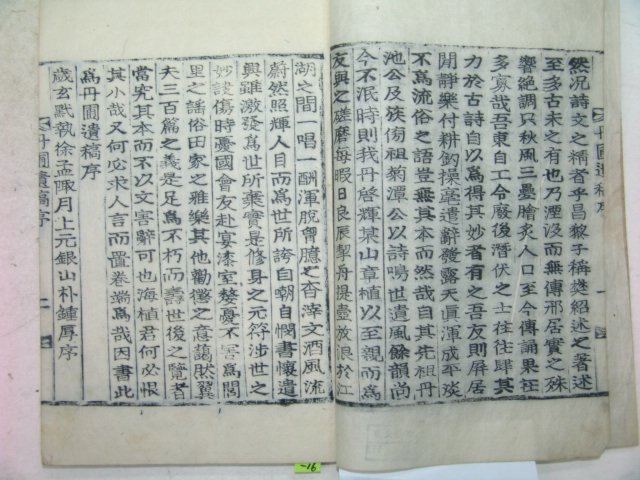 然况詩文之稱者乎昌黎子稱樊紹述之著述
至多古未之有也乃湮沒而無傳邢居實之殊
響絶調只秋風三疊膾炙人口至今傳誦果在
多寡哉吾東自工令廢後潛伏之士往往肆其
力於古詩自以爲得其妙者有之吾友則屛居
閒靜樂付耕釣操毫遣辭發露天眞渾成平淡
不爲流俗之語豈無其本而然哉其先祖丹
池公及族傍祖菊潭公以詩鳴世遺風餘韻尚
今不泯時則我丹啓輝某山章植以至親而爲
友與之磋磨每暇日良辰挈舟提壺放浪於江
丹圃遺稿序
湖之間一唱一酬渾脫胷臆之杳滓文酒風流
蔚然照輝人目而爲世所誇自朝自憫書懷遣
興雖激發爲世所棄實是修身之元符涉世之
妙謏傷時憂國會友赴宴漆室嫠憂不害爲閭
里之謠俗田家之雅樂其他勸懲之意藹然翼
夫三百篇之義是足爲不朽而壽世後之覽者
當究其本而不以文害辭可也海植君何必恨
其小哉又何必求人言而置卷端爲哉因書此
爲丹圃遺稿序
歲玄黓執徐孟陬月上元銀山朴鍾厚序
丹圃遺稿序
二
-16